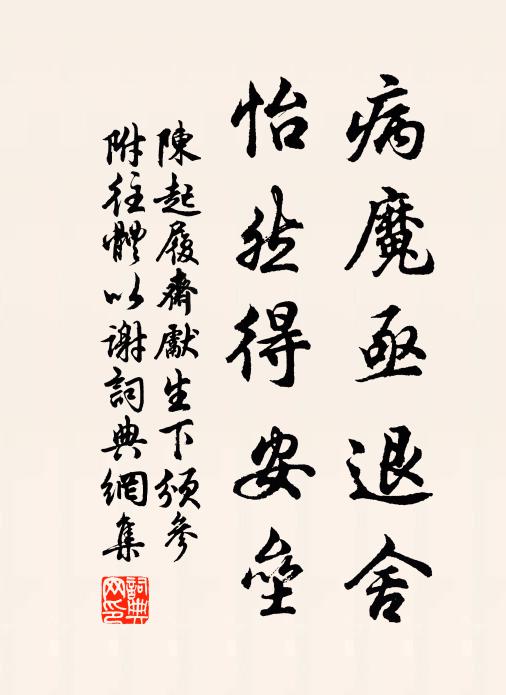 病魔亟退舍
怡然得安垒
陳起履齋獻生下頒參
附往體以谢詞典網集
詞典网印